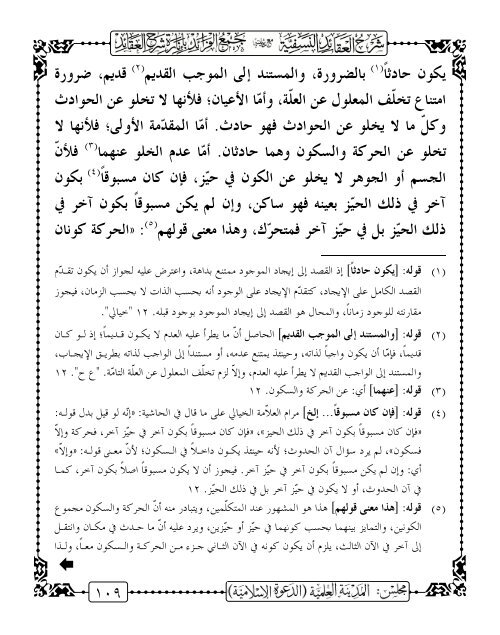 شرح العقائد النسفية مع جمع الفرائد بإنارة شرح العقائد
يكون حادثاً(١) بالضرورة، والمستند إلى الموجب القديم(٢) قديم، ضرورة
امتناع تخلّف المعلول عن العلّة، وأمّا الأعيان؛ فلأنها لا تخلو عن الحوادث
وكلّ ما لا يخلو عن الحوادث فهو حادث. أمّا المقدّمة الأولى؛ فلأنها لا
تخلو عن الحركة والسكون وهما حادثان. أمّا عدم الخلو عنهما(٣) فلأنّ
الجسم أو الجوهر لا يخلو عن الكون في حيّز، فإن كان مسبوقاً(٤) بكون
آخر في ذلك الحيّز بعينه فهو ساكن، وإن لم يكن مسبوقاً بكون آخر في
ذلك الحيّز بل في حيّز آخر فمتحرّك، وهذا معنى قولهم(٥): «الحركة كونان
(١) قوله: [يكون حادثاً] إذ القصد إلى إيجاد الموجود ممتنع بداهة، واعترض عليه لجواز أن يكون تقدّم
القصد الكامل على الإيجاد، كتقدّم الإيجاد على الوجود أنه بحسب الذات لا بحسب الزمان، فيجوز
مقارنته للوجود زماناً، والمحال هو القصد إلى إيجاد الموجود بوجود قبله. ١٢ "خيالي".
(٢) قوله: [والمستند إلى الموجب القديم] الحاصل أنّ ما يطرأ عليه العدم لا يكون قديماً؛ إذ لو كان
قديماً، فإمّا أن يكون واجباً لذاته، وحينئذ يمتنع عدمه، أو مستنداً إلى الواجب لذاته بطريق الإيجاب،
والمستند إلى الواجب القديم لا يطرأ عليه العدم، وإلّا لزم تخلّف المعلول عن العلّة التامّة. "ع ح". ١٢
(٣) قوله: [عنهما] أي: عن الحركة والسكون. ١٢
(٤) قوله: [فإن كان مسبوقاً... إلخ] مرام العلاّمة الخيالي على ما قال في الحاشية: «إنّه لو قيل بدل قوله:
«فإن كان مسبوقاً بكون آخر في ذلك الحيز»، «فإن كان مسبوقاً بكون آخر في حيّز آخر، فحركة وإلاّ
فسكون»، لم يرد سؤال آن الحدوث؛ لأنه حينئذ يكون داخلاً في السكون؛ لأنّ معنى قوله: «وإلاّ»
أي: وإن لم يكن مسبوقاً بكون آخر في حيّز آخر. فيجوز أن لا يكون مسبوقاً اصلاً بكون آخر، كما
في آن الحدوث، أو لا يكون في حيّز آخر بل في ذلك الحيّز. ١٢
(٥) قوله: [هذا معنى قولهم] هذا هو المشهور عند المتكلّمين، ويتبادر منه أنّ الحركة والسكون مجموع
الكونين، والتمايز بينهما بحسب كونهما في حيّز أو حيّزين، ويرد عليه أنّ ما حدث في مكان وانتقل
إلى آخر في الآن الثالث، يلزم أن يكون كونه في الآن الثاني جزء من الحركة والسكون معاً، ولذا
مجلس: المدينة العلمية (الدعوة الإسلامية)
١٠٩